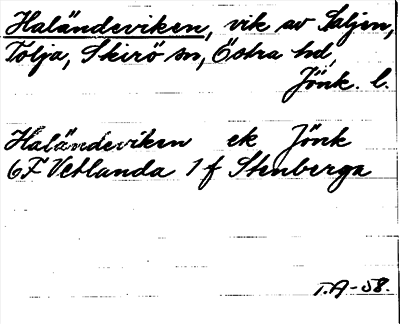 Haländeviken, vik av Saljen,
Tolja, Skirö sn, Östra hd,
Jönk. l.
Haländeviken ek Jönk
6F Vetlanda 1 f Stenberga
T.A-58.